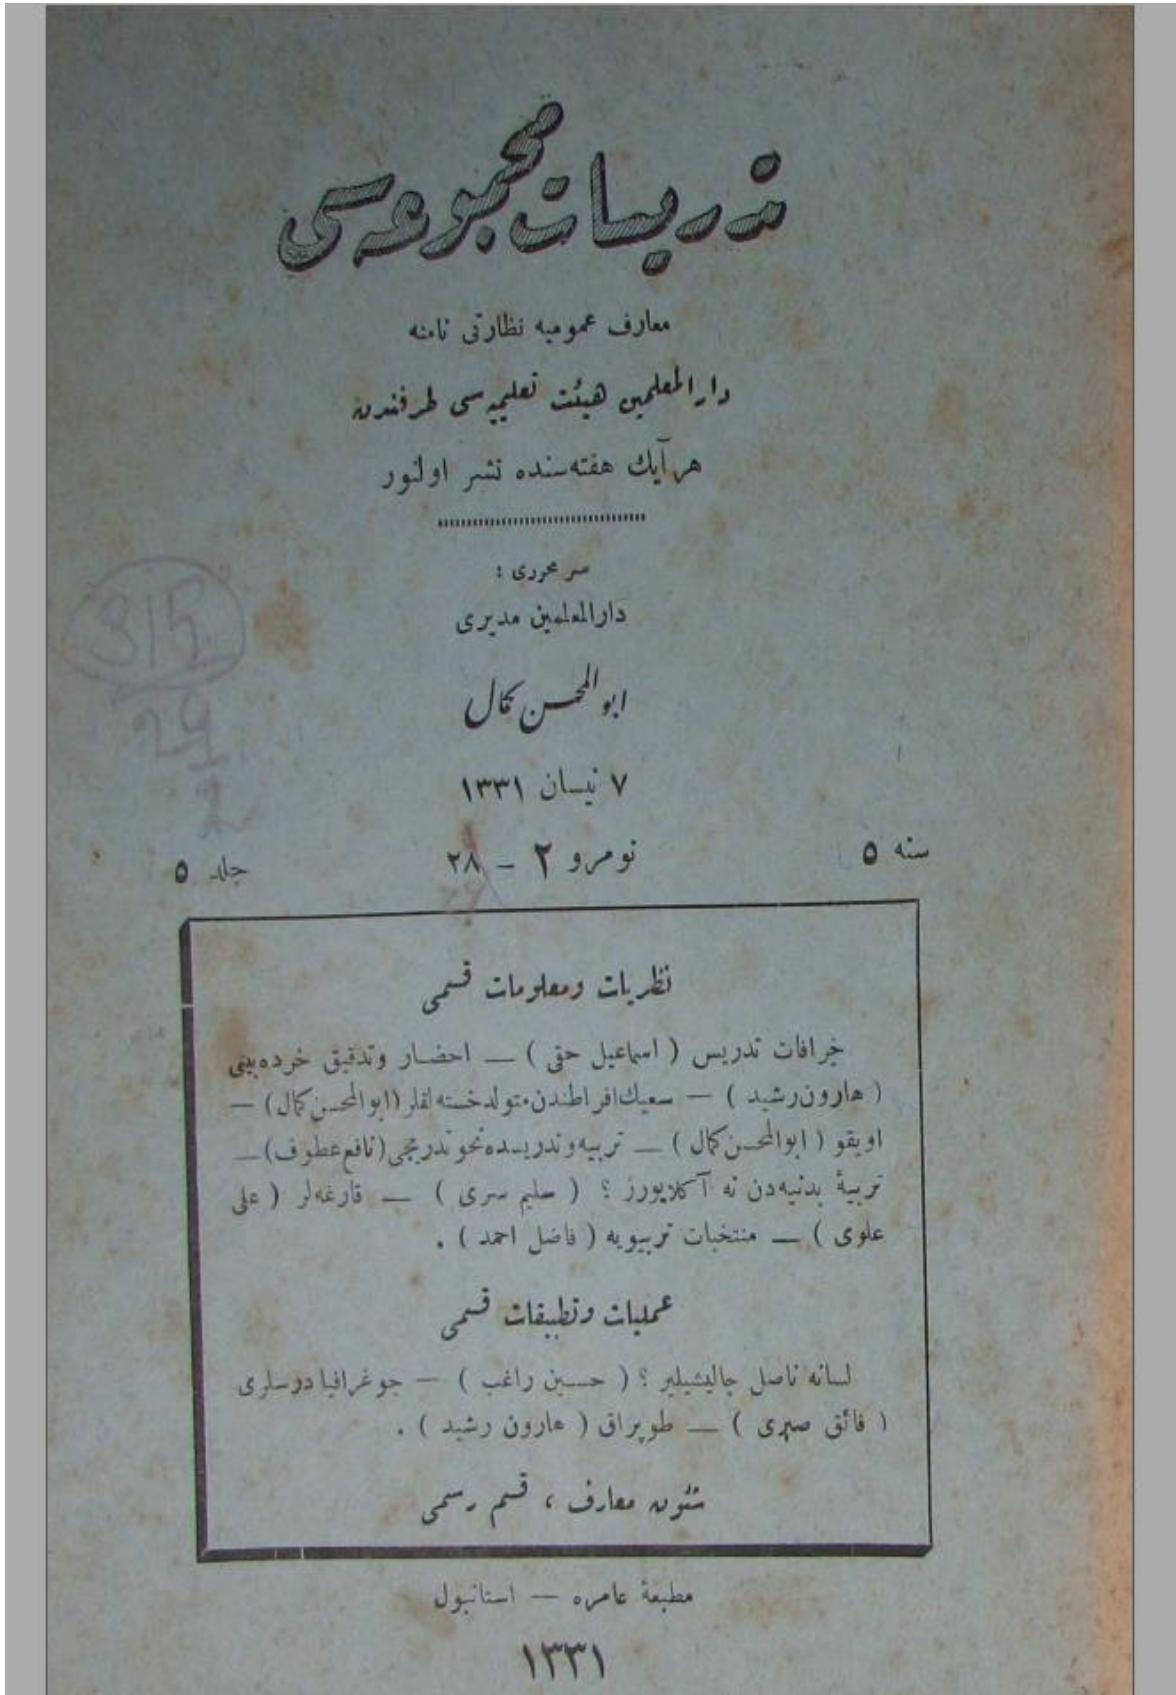 تدریسات مجموعه‌سی
معارف عمومیه نظارتی نامنه
دارالمعلمین هیئت تعلیمیه‌سی طرفندن
هر آیك هفته‌سنده نشر اولنور
سر محرری :
دارالمعلمین مدیری
ابوالمحسن کمال
٧ نیسان ١٣٣١
سنه ٥
نومرو ٢ – ٢٨
جلد ٥
315
29
2
نظریات ومعلومات قسمی
خرافات تدریس ( اسماعیل حقی ) — احضار وتدقیق خرده‌بینی
( هارون رشید ) — سعیك افراطندن متولد خسته‌لقلر (ابوالمحسن کمال) —
اویقو ( ابوالمحسن کمال ) — تربیه وتدریسده نحو تدریجی (نافع عطوف) —
تربیهٔ بدنیه‌دن نه آکلایورز ؟ ( سلیم سری ) — قارغه‌لر ( علی
علوی ) — منتخبات تربیویه ( فاضل احمد ) .
عملیات وتطبیقات قسمی
لسانه ناصل چالیشیلیر ؟ ( حسین راغب ) — جوغرافیا درسلری
( فائق صبری ) — طوپراق ( هارون رشید ) .
شئون معارف ، قسم رسمی
مطبعهٔ عامره — استانبول
١٣٣١